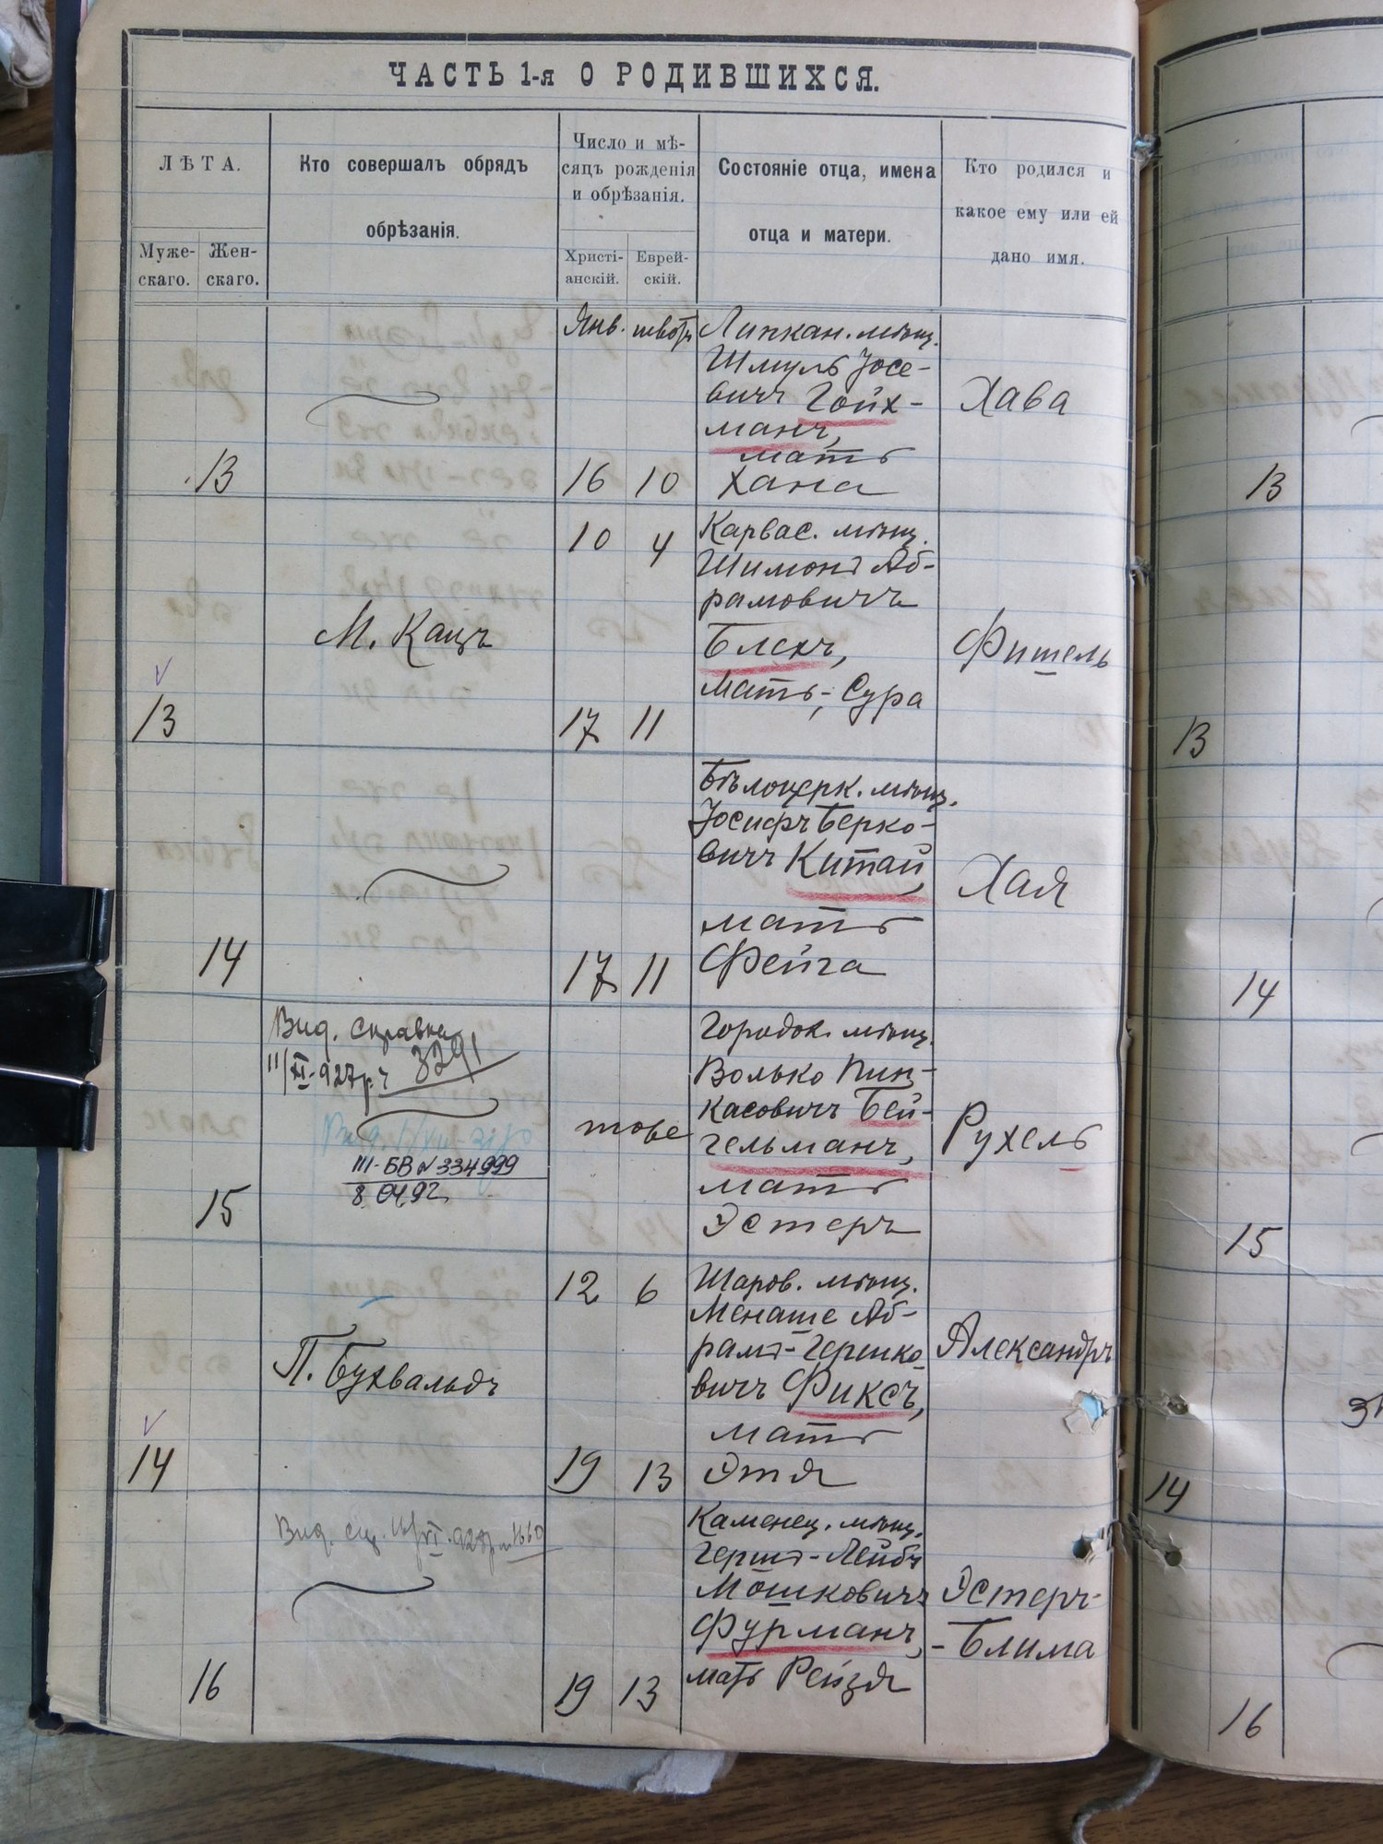 ЧАСТЬ 1-я О РОДИВШИХСЯ.
ЛѢТА.
Муже-
скаго.
Жен-
скаго.
Кто совершалъ обрядъ
обрѣзанія.
Число и мѣ-
сяцъ рожденія
и обрѣзанія.
Христі-
анскій.
Еврей-
скій.
Состояніе отца, имена
отца и матери.
Кто родился и
какое ему или ей
дано имя.
Янв.
13
16
10
Липкан. мѣщ.
Шмуль Іосе-
вичъ Гойх-
манъ,
мать
Хана
Хава
13
10
4
13
М. Кацъ
17
11
Карвас. мѣщ.
Шимонъ Аб-
рамовичъ
Блехъ,
Мать, Сура
Фишель
13
14
17
11
Бѣлоцерк. мѣщ.
Іосифъ Берко-
вичъ Китай,
мать
Фейга
Хая
14
Вид. справка
11/XI-927 р. ч 3291
III-БВ № 334999
8.04.92
15
тоже
Городок. мѣщ.
Волько Пин-
касовичъ Бей-
гельманъ,
мать
Эстеръ
Рухель
15
12
6
14
П. Бухвальдъ
19
13
Шаров. мѣщ.
Менаше Аб-
рамъ-Гершко-
вичъ Фиксъ,
мать
Этя
Александръ
14
Вид. 1660
16
19
13
Каменец. мѣщ.
Гершъ-Лейбъ
Мошковичъ
Фурманъ,
мать Рейзя
Эстеръ-
-Блима
16